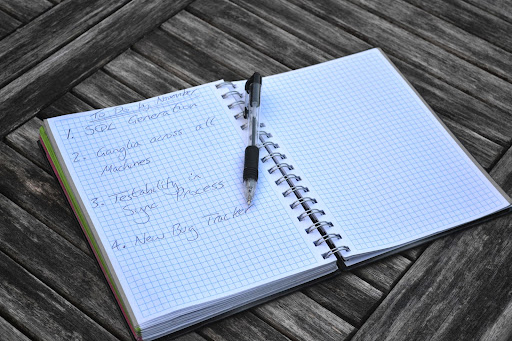 To Do by November
1. SQL Generation
2. Ganglia across all
Machines
3. Testability in
Sync Process
4. New Bug Tracker